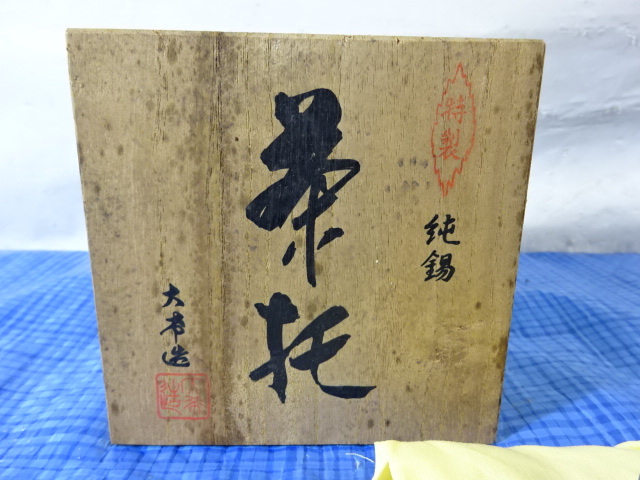 特製
純錫
茶托
大春造